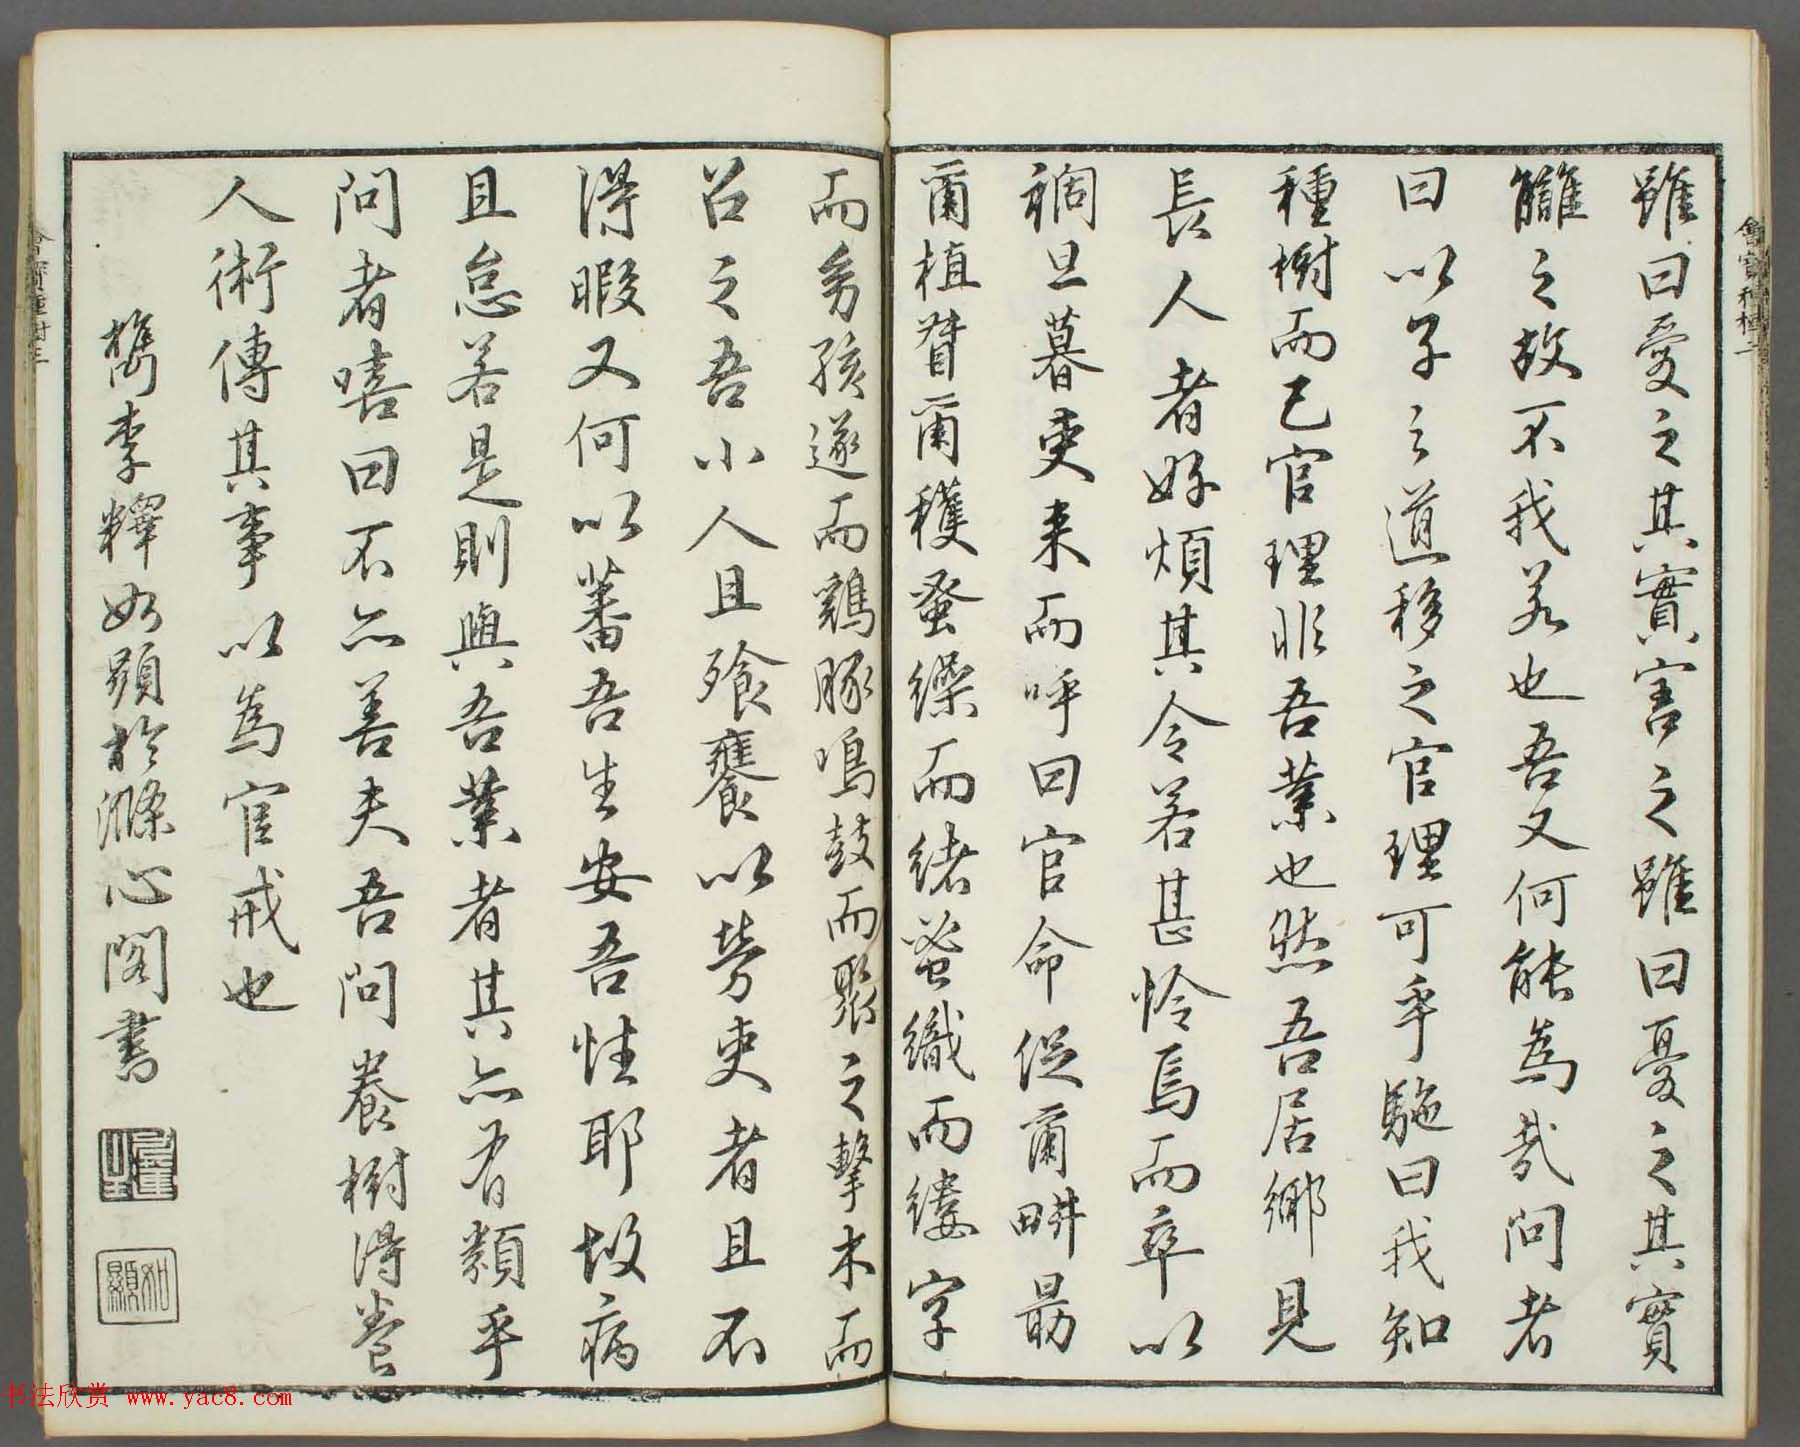 雖曰愛之其實害之雖曰憂之其實
讎之故不我若也吾又何能為哉問者
曰以子之道移之官理可乎駞曰我知
種樹而已官理非吾業也然吾居鄉見
長人者好煩其令若甚怜焉而卒以
禍旦暮吏来而呼曰官命促爾畊勗
爾植督爾穫蚤繰而緒蚤織而縷字
而幼孩遂而鷄豚鳴鼓而聚之擊木而
召之吾小人且飱饔以勞吏者且不
得暇又何以蕃吾生安吾性耶故病
且怠若是則與吾業者其亦有類乎
問者嘻曰不亦善夫吾問養樹得養
人術傳其事以為官戒也
檇李釋如顯於滌心閣書
如顯
书法欣赏 www.yac8.com